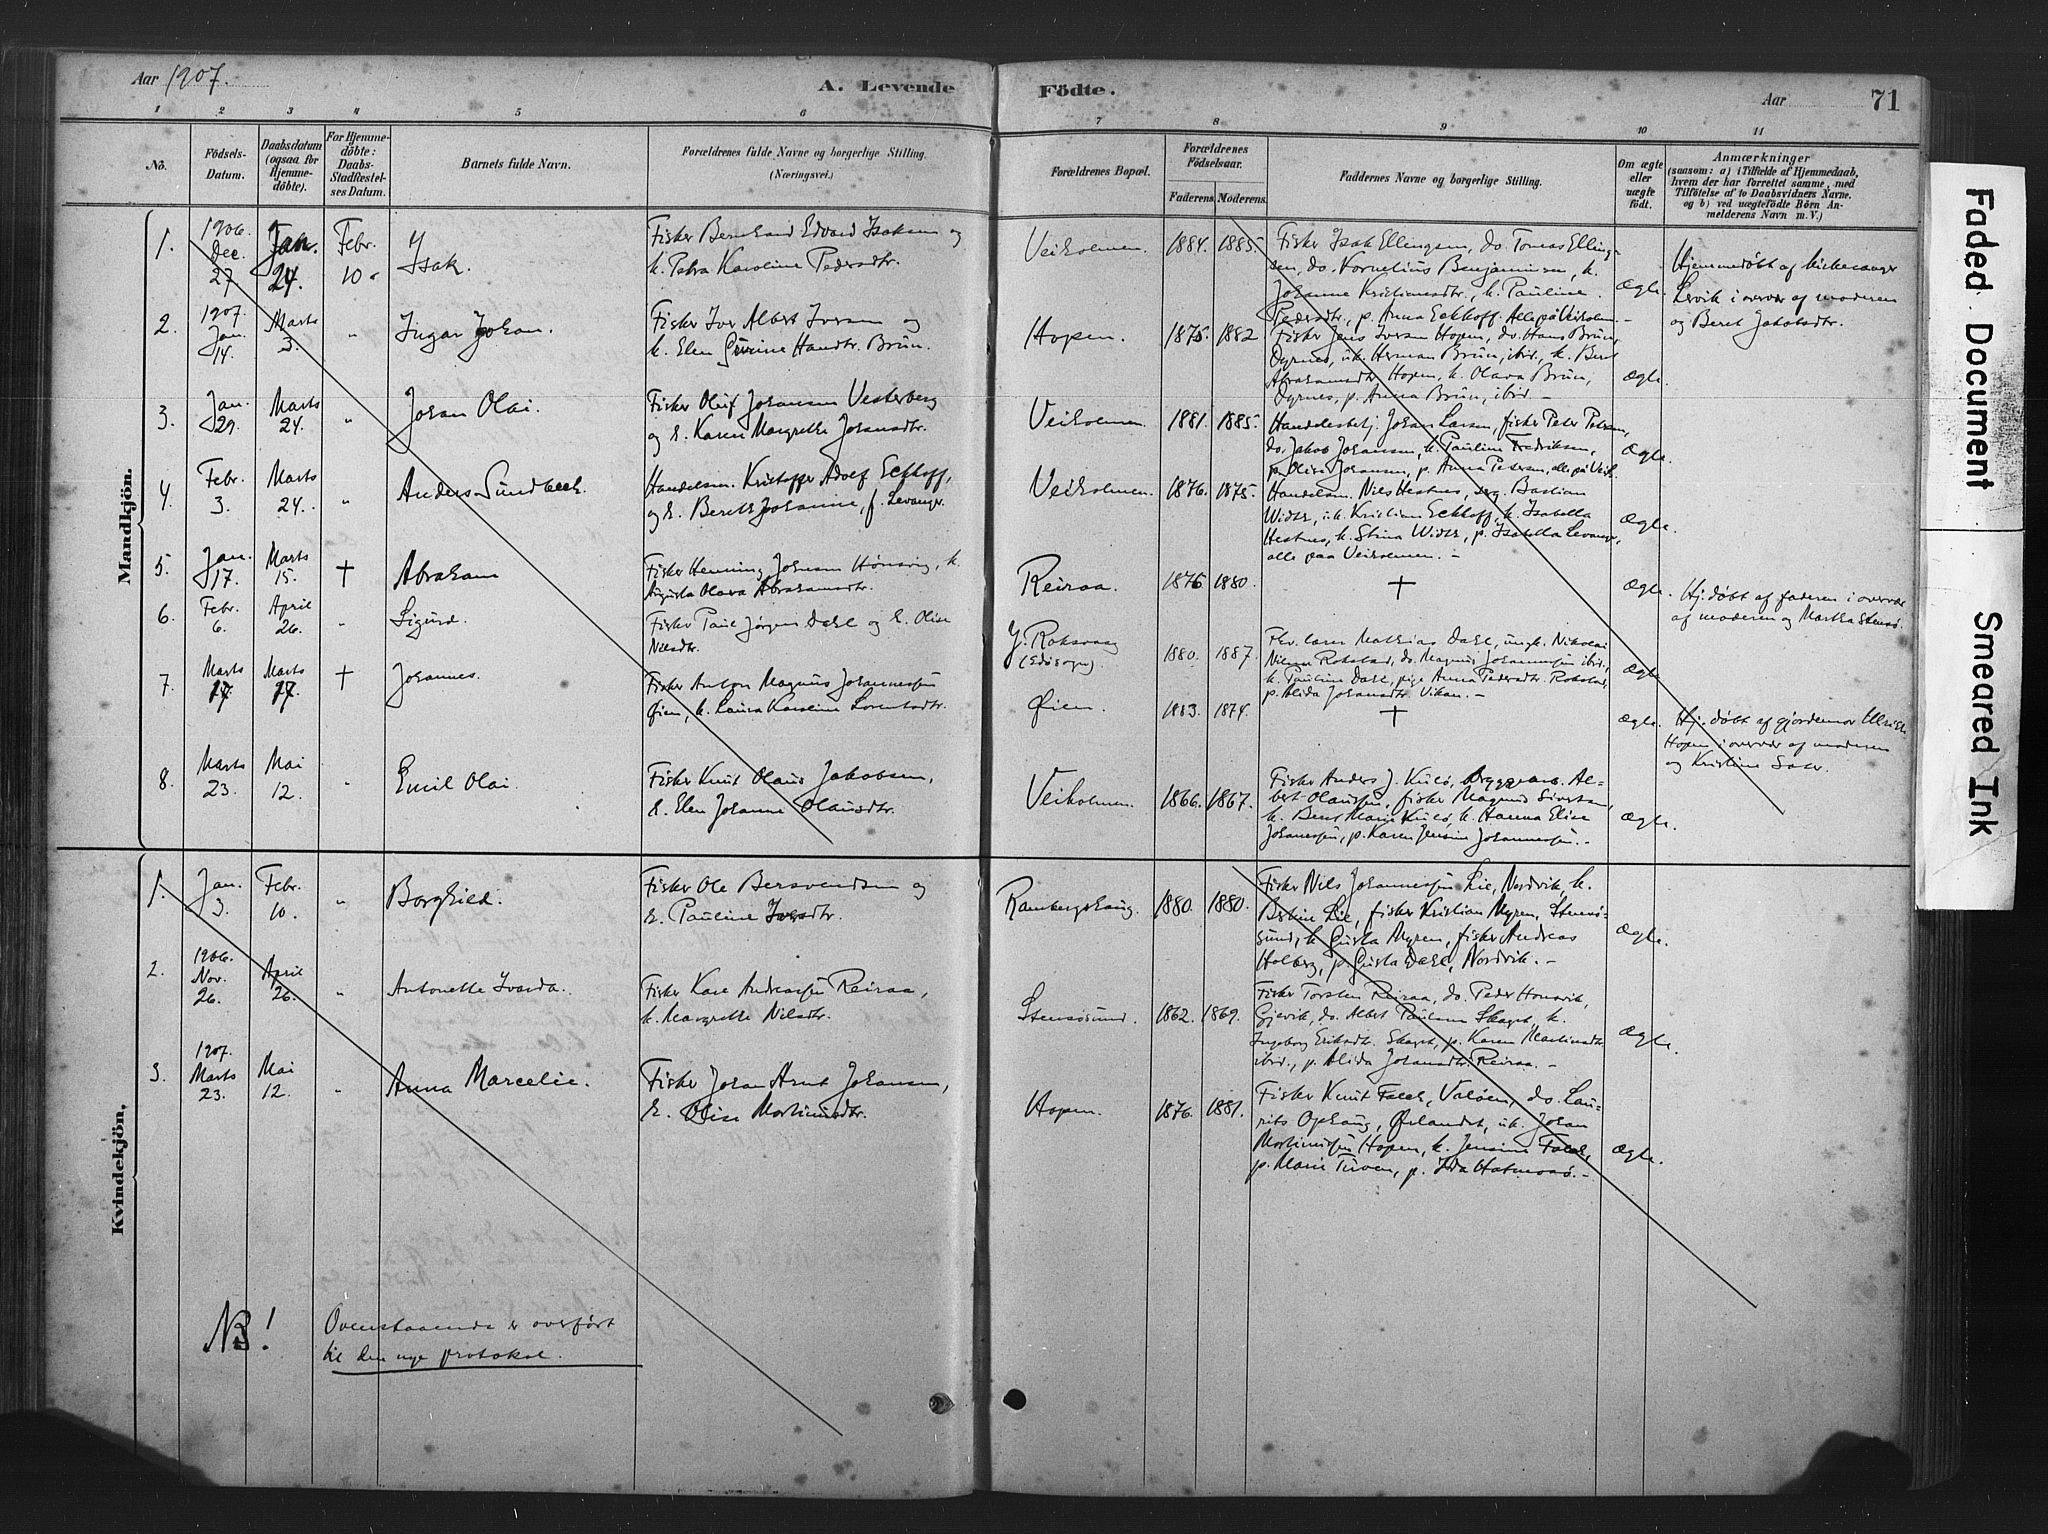 Aar 1907.
A. Levende
Födte.
Aar
71
1 2 3 4 5 6
7 8 9 10 11
Nö.
Födsels-
Datum.
Daabsdatum
(ogsaa for
Hjemme-
döbte).
For Hjemme-
döbte:
Daabs-
Stadfæstel-
ses Datum.
Barnets fulde Navn.
Forældrenes fulde Navne og borgerlige Stilling.
(Næringsvei.)
Forældrenes Bopæl.
Forældrenes
Födselsaar.
Faderens. Moderens.
Faddernes Navne og borgerlige Stilling.
Om ægte
eller
uægte
födt.
Anmærkninger
(saasom: a) i Tilfælde af Hjemmedaab,
hvem der har forrettet samme, med
Tilföielse af to Daabsvidners Navne.
og b) ved uægtefödte Börn An-
melderens Navn m.V.)
Mandkjön.
1.
1906.
Dec.
27
Jan.
24.
Febr.
10.
Isak.
Fisker Bernhard Edvard Isaksen og
h. Petra Karoline Pedersdtr.
Veiholmen.
1884. 1885.
Fisker Isak Ellingsen, do. Tomas Elling-
sen, do. Kornelius Benjaminsen, h.
Johanne Kristiansdtr., h. Pauline
Pedersdtr., p. Anna Eckhoff. Alle på Veiholm.
Ægte.
Hjemmedøbt af kirkesanger
Lervik i overvær af moderen
og Beret Jakobsdtr.
2.
1907.
Jan.
14.
Marts
3.
"
Ingar Johan.
Fisker Iver Albert Iversen og
h. Elen Gurine Hansdtr. Brun.
Hopen.
1875. 1882
Fisker Jens Iversen Hopen, do. Hans Brun,
Dyrnes, uk. Herman Brun, ibid., h. Beret
Abrahamsdtr. Hopen, h. Olava Brun,
Dyrnes, p. Anna Brun, ibid. –
Ægte.
3.
Jan.
29.
Marts
24.
"
Johan Olai.
Fisker Oluf Johansen Vesterberg
og h. Karen Margrethe Johansdtr.
Veiholmen
1881. 1885.
Handelsbetj. Johan Larsen, fisker Peter Petersen,
do. Jakob Johansen, h. Pauline Fredriksen,
p. Olise Johansen, p. Anna Petersen, alle på Veih.
Ægte.
4.
Febr.
3.
Marts
24.
"
Anders Sundbech.
Handelsm. Kristoffer Adolf Eckhoff,
og h. Beret Johanne, f. Levanger.
Veiholmen.
1876. 1875.
Handelsm. Nils Hestnes, Bastian
uk. Kristian Eckhoff, h. Isabella
Hestnes, h. Stina p. Isabella Levanger,
alle paa Veiholmen. –
Ægte.
5.
Jan.
17.
Marts
15.
†
Abraham
Fisker Henning Johnsen Hønsvig, h.
Augusta Olava Abrahamsdtr.
Reiraa.
1876 1880.
†
Ægte.
Hj. døbt af faderen i overvær
af moderen og Martha Stensø.
6.
Febr.
6.
April
26.
"
Sigurd.
Fisker Paul Jørgen Dahl og h. Olise
Nilsdtr.
Y. Roksvaag
(Edøsogn).
1880. 1887.
Lars Mathias Dahl, ungk. Nikolai
Nilsen Rokstad, do. Magnus Johannessen ibid.,
h. Pauline Dahl, pige Anna Pedersdtr. Rokstad,
p. Alida Johansdtr. Vikan. –
Ægte
7.
Marts
17.
Marts
17.
†
Johannes.
Fisker Anton Magnus Johannessen
Øien, h. Laura Karoline Lorentsdtr.
Øien.
1883. 1874.
†
Ægte.
Hj. døbt af gjordemor Ulrikke
Hopen i overvær af moderen
og Kristine Sæter.
8.
Marts
23.
Mai
12.
"
Emil Olai.
Fisker Knut Olaus Jakobsen,
h. Elen Johanne Olausdtr.
Veiholmen.
1866. 1867.
Fisker Anders J. Kulø, bryggearb. Al-
bert Olaussen, fisker Magnus Sivertsen,
h. Beret Marie Kulø, h. Hanna Elise
Johannessen, p. Karen Jensine Johannessen. –
Ægte.
Kvindekjön.
1.
Jan.
3.
Febr.
10.
"
Borghild.
Fisker Ole Bersvendsen og
h. Pauline Iversdtr.
Rambergshaug.
1880. 1880.
Fisker Nils Johannessen Lie, Nordvik, h.
Lie, fisker Kristian Myren, Stensø-
sund, h. Gusta Myren, fisker Andreas
Holberg, p. Gusta Dahl, Nordvik. –
Ægte.
2.
1906.
Nov.
26.
April
26.
"
Antonette Ivarda.
Fisker Kase Andreassen Reiraa,
h. Margrethe Nilsdtr.
Stensøsund.
1862. 1869.
Fisker Torsten Reiraa, do. Peder Honsvik,
Gjævik, do. Albert Paulsen Skaget, h.
Ingeborg Eriksdtr. Skaget, p. Karen Martinsdtr.
ibid., p. Alida Johansdtr. Reiraa. –
Ægte.
3.
1907.
Marts
23.
Mai
12.
"
Anna Marcelie.
Fisker Johan Arnt Johansen,
h. Olise Martinusdtr.
Hopen.
1876. 1881.
Fisker Knut Falch, Valøen, do. Lau-
rits Ophaug, Ørlandet, uk. Johan
Martinussen Hopen, h. Jensine Falch,
p. Marie Tuven, p. Ida Hatmosø. –
Ægte.
NB!
Ovenstaaende er overført
til den nye protokol.
Faded Document
Smeared Ink